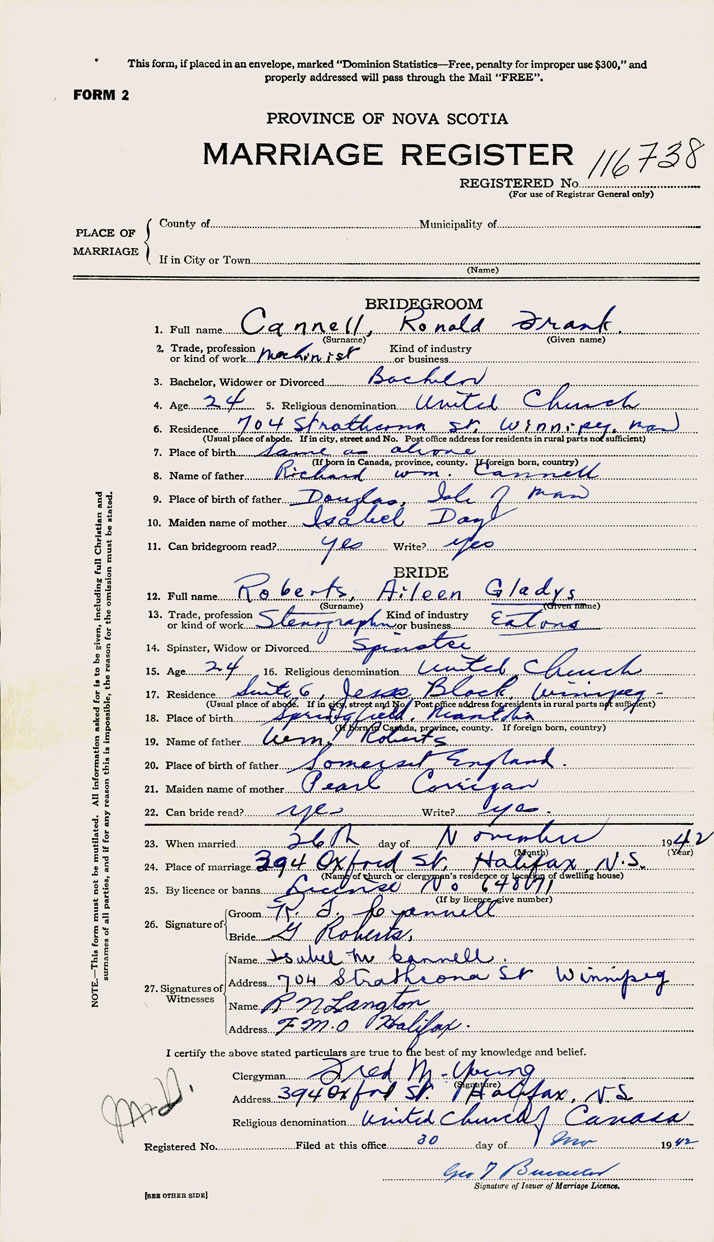 This form, if placed in an envelope, marked "Dominion Statistics—Free, penalty for improper use $300," and
properly addressed will pass through the Mail "FREE".
FORM 2
PROVINCE OF NOVA SCOTIA
MARRIAGE REGISTER 116738
REGISTERED No.
(For use of Registrar General only)
PLACE OF MARRIAGE
County of Municipality of
If in City or Town
(Name)
BRIDEGROOM
1. Full name Cannell, Ronald Frank.
(Surname) (Given name)
2. Trade, profession or kind of work Machinist Kind of industry or business
3. Bachelor, Widower or Divorced Bachelor
4. Age 24 5. Religious denomination United Church
6. Residence 704 Strathcona St. Winnipeg. Man
(Usual place of abode. If in city, street and No. Post office address for residents in rural parts not sufficient)
7. Place of birth Same as above
(If born in Canada, province, county. If foreign born, country)
8. Name of father Richard Wm. Cannell
9. Place of birth of father Douglas, Isle of Man
10. Maiden name of mother Isabel Day
11. Can bridegroom read? Yes Write? Yes
BRIDE
12. Full name Roberts, Aileen Gladys
(Surname) (Given name)
13. Trade, profession or kind of work Stenographer Kind of industry or business Eatons
14. Spinster, Widow or Divorced Spinster
15. Age 24 16. Religious denomination United Church
17. Residence Suite 6, Jesse Block, Winnipeg -
(Usual place of abode. If in city, street and No. Post office address for residents in rural parts not sufficient)
18. Place of birth Springfield, Manitoba
(If born in Canada, province, county. If foreign born, country)
19. Name of father Wm. Roberts
20. Place of birth of father Somerset England.
21. Maiden name of mother Pearl Corrigan
22. Can bride read? Yes Write? Yes.
23. When married 26th day of November 1942
(Month) (Year)
24. Place of marriage 394 Oxford St, Halifax, N.S.
(Name of church or clergyman's residence or location of dwelling house)
25. By licence or banns License No
(If by licence, give number)
26. Signature of
Groom R. F. Cannell
Bride G Roberts.
27. Signatures of Witnesses
Name Isabel M Cannell.
Address 704 Strathcona St Winnipeg
Name R N Langton
Address F.M.O Halifax.
I certify the above stated particulars are true to the best of my knowledge and belief.
Clergyman Fred M. Young
(Signature)
Address 394 Oxford St. Halifax, N.S
Religious denomination United Church of Canada
Registered No. Filed at this office 30 day of Nov 1942
Geo
Signature of Issuer of Marriage Licence.
[SEE OTHER SIDE]
NOTE.—This form must not be mutilated. All information asked for is to be given, including full Christian and
surnames of all parties, and if for any reason this is impossible, the reason for the omission must be stated.